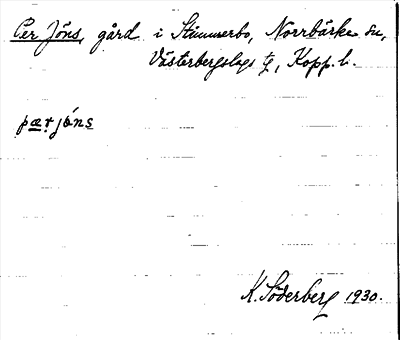 Per Jöns, gård i Stimmerbo, Norrbärke sn,
Västerbergslags tg, Kopp. l.
pær jóns
K. Söderberg 1930.